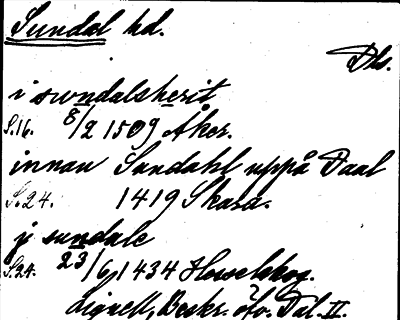 Sundal hd.
Dls.
i swndalsherit
S.16. 8/2 1509 Åker.
innan Sundahl uppå Daal
S.24. 1419 Skara.
j sundale
S.24. 23/6 1434 Hesselskog.
Lignell, Beskr. öfv. Dal. II.